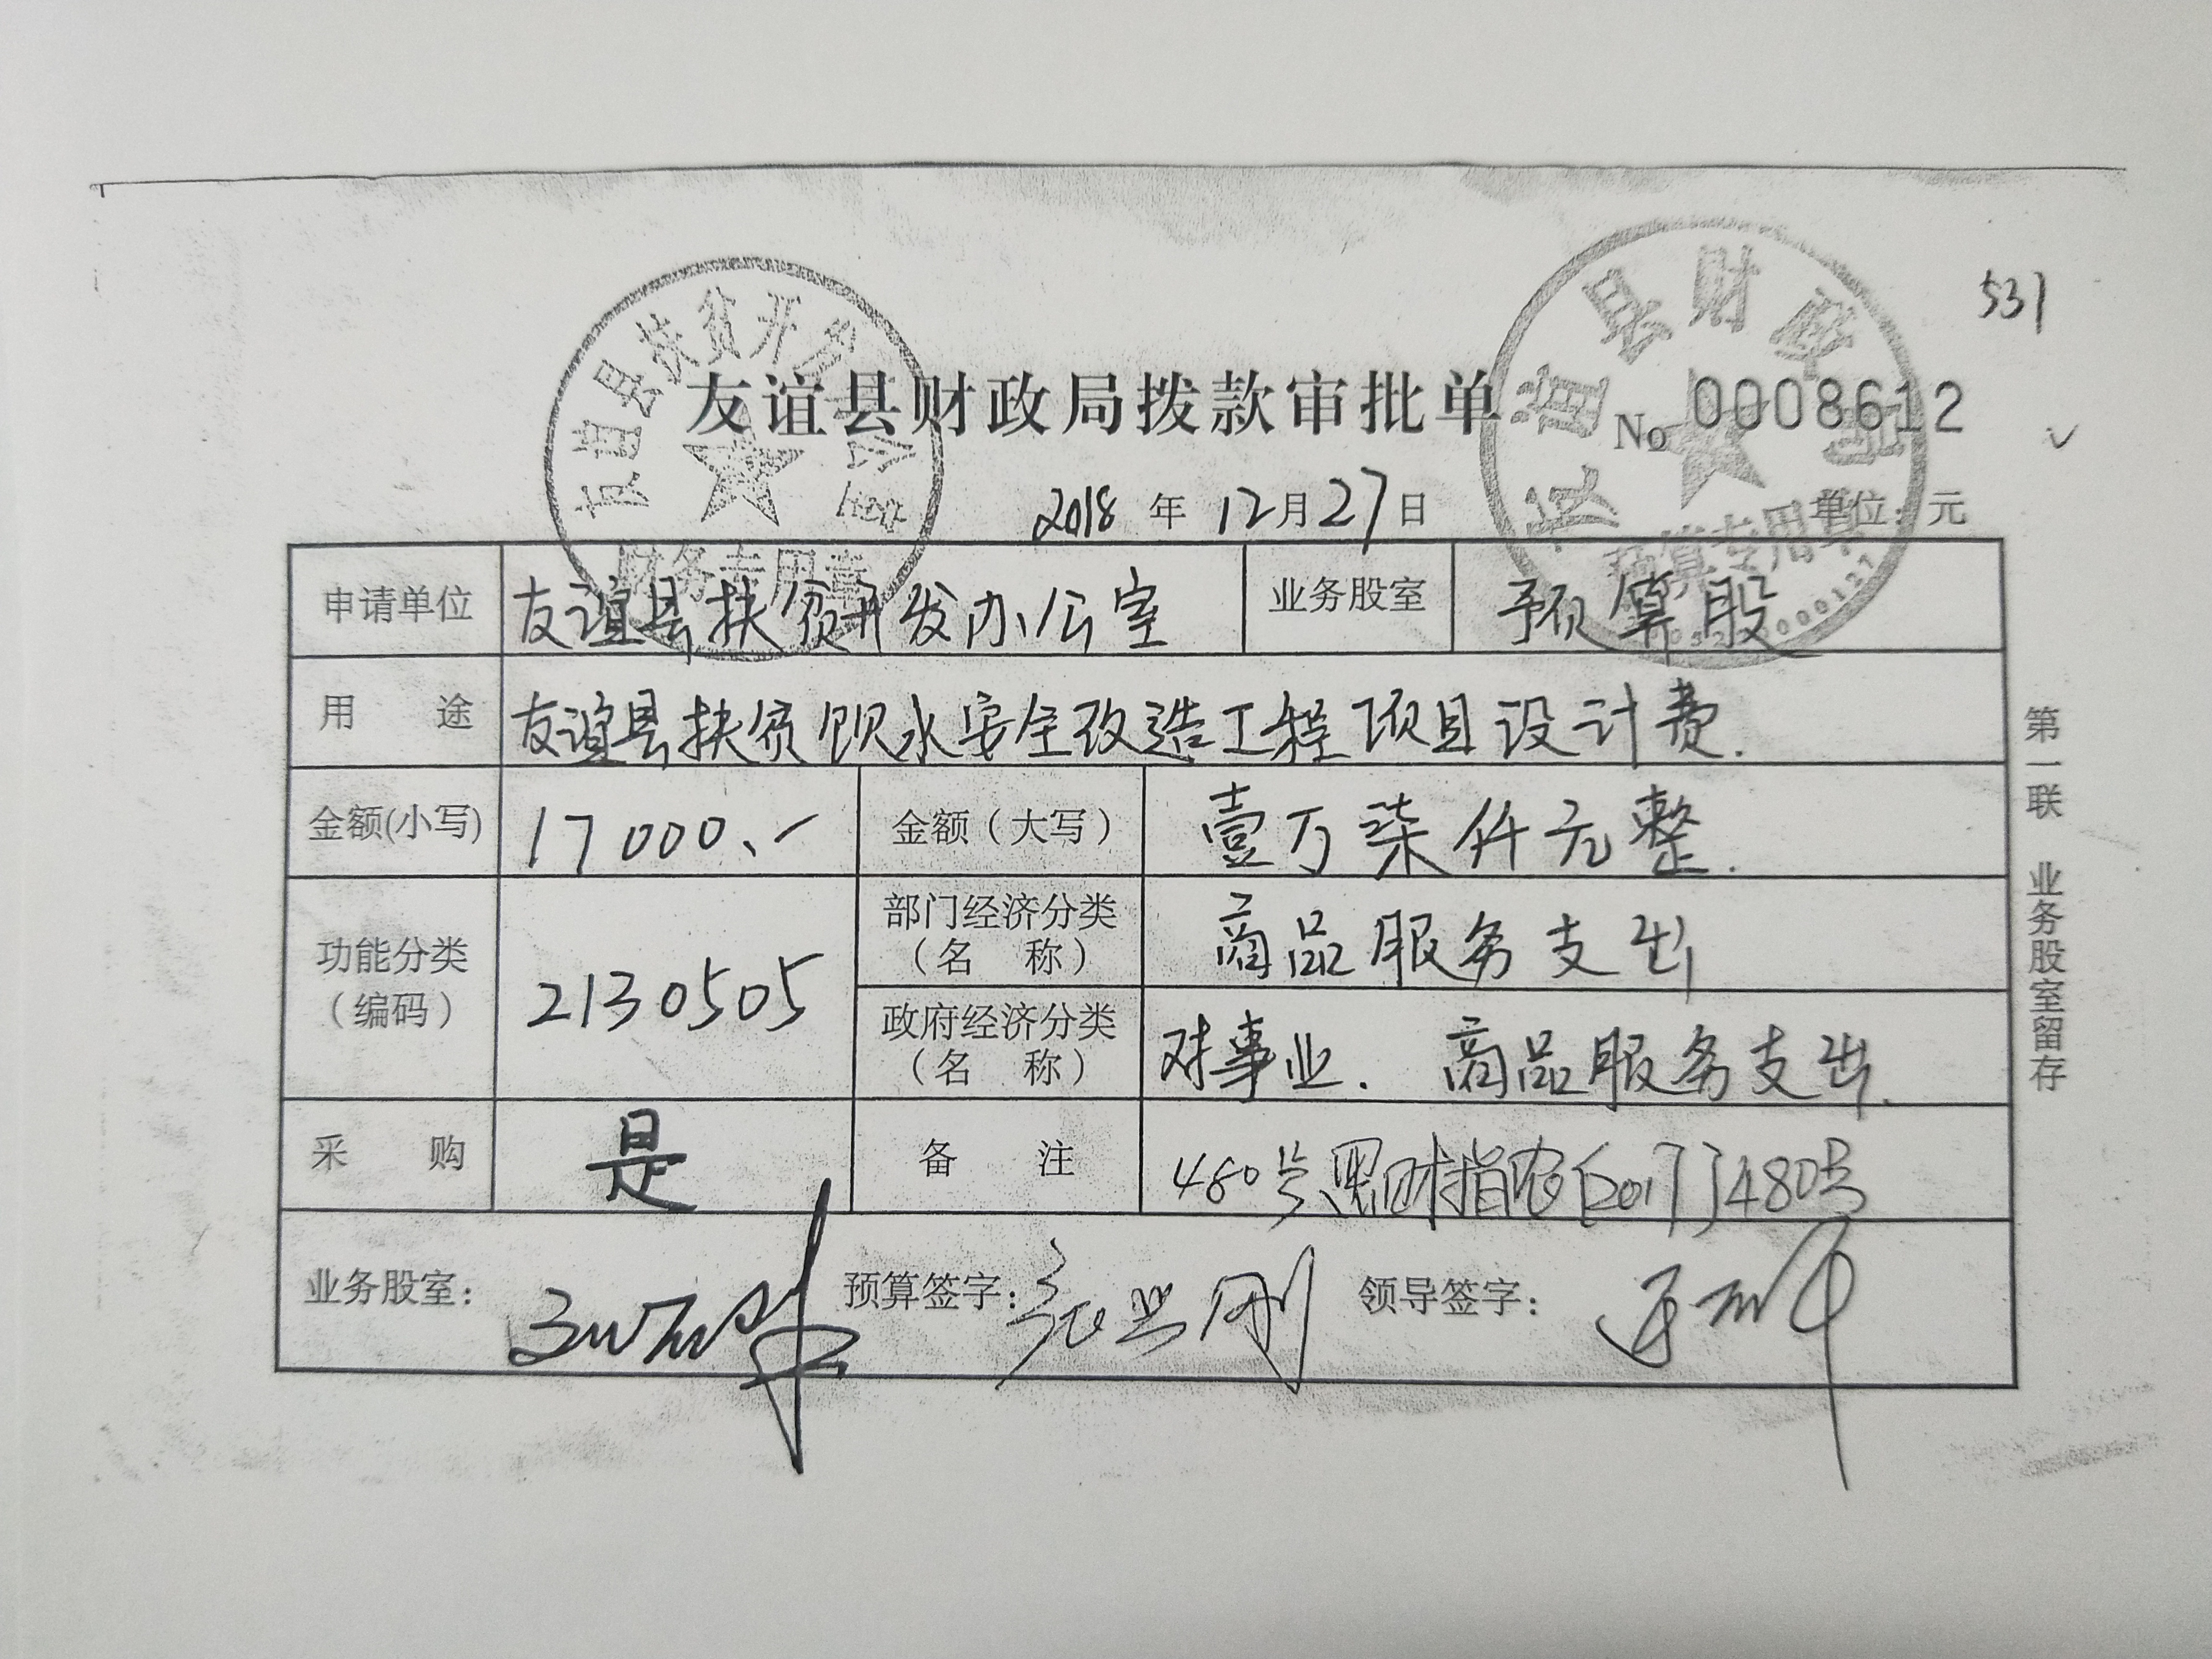 531
友谊县财政局拨款审批单 No 0008612
2018 年 12月27日 单位：元
申请单位 友谊县扶贫开发办公室 业务股室 预算股
用 途 友谊县扶贫饮水安全改造工程项目设计费.
金额(小写) 17000.- 金额（大写） 壹万柒仟元整.
功能分类（编码） 2130505 部门经济分类（名 称） 商品服务支出
政府经济分类（名 称） 对事业. 商品服务支出.
采 购 是 备 注 480号黑财指农〔2017〕480号
业务股室： 预算签字： 领导签字：
第一联 业务股室留存
友谊县扶贫开发办公室
财务专用章
友谊县财政局
预算专用章